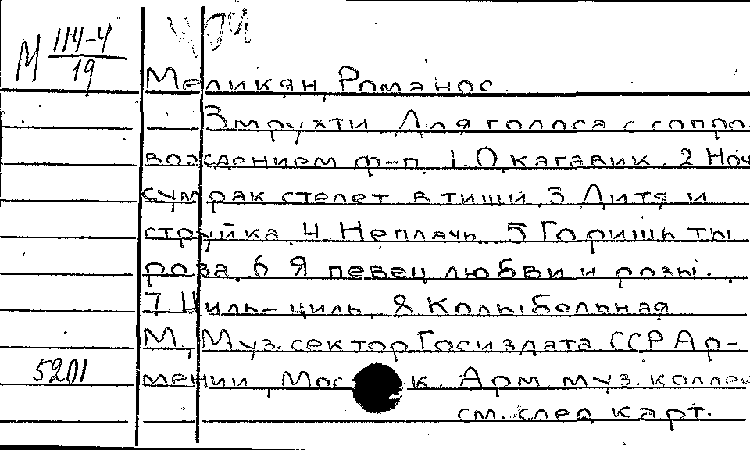 М 114-4
19
Меликян, Романос
Змрухти. Для голоса с сопро
вождением ф-п. 1. О, кагавик. 2 Ноч
сумрак стелет в тиши. 3 Дитя и
струйка. 4 Не плачь. 5 Горишь ты
роза. 6 Я певец любви и розы.
7 Циль-циль. 8 Колыбельная
М., Муз. сектор Госиздата ССР Ар-
5201
мении, Мос к. Арм. муз. коллек
см. след. карт.